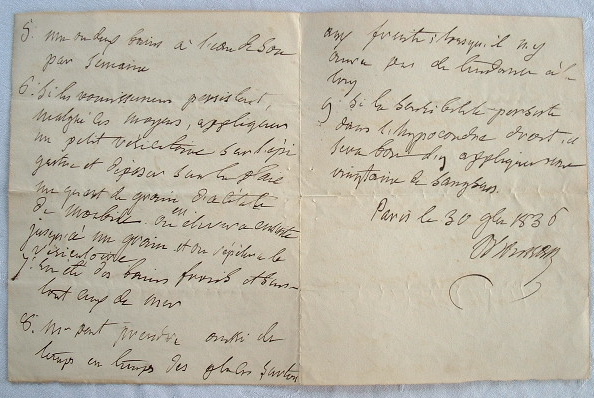 5. un ou deux bains à l'eau de son
par semaine
6. Si les vomissemens persistent,
malgré les moyens, appliquer
un petit vésicatoire sur l'épi
gastre et déposer sur la place
un quart de grain d'acétate
de morphine on élevera ensuite
jusqu'à un grain et on répétera le
vésicatoire
7. En été des bains froids et sur-
tout ceux de mer
8. on peut prendre aussi de
temps en temps des glaces surtout
aux fruits; lorsqu'il n'y
aura pas de tendance à la
toux
9. Si la sensibilité persiste
dans l'hypocondre droit, il
sera bon d'y appliquer une
vingtaine de sangsues.
Paris le 30 9bre 1836